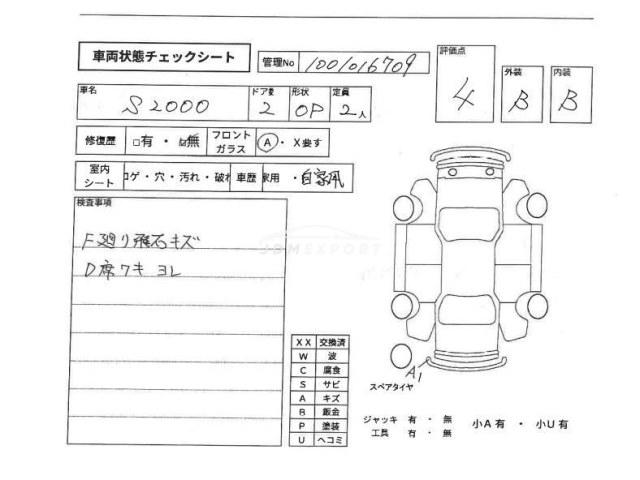 車両状態チェックシート
管理No 1001016709
評価点 4
外装 B
内装 B
車名 S2000
ドア数 2
形状 OP
定員 2人
修復歴 □有・☑無
フロントガラス A・X要す
室内シート コゲ・穴・汚れ・破れ
車歴 家用・自家用
検査事項
F廻り飛石キズ
D席ワキ ヨレ
JDMEXPORT
XX 交換済
W 波
C 腐食
S サビ
A キズ
B 鈑金
P 塗装
U ヘコミ
A1
スペアタイヤ
ジャッキ 有・無
工具 有・無
小A有・小U有